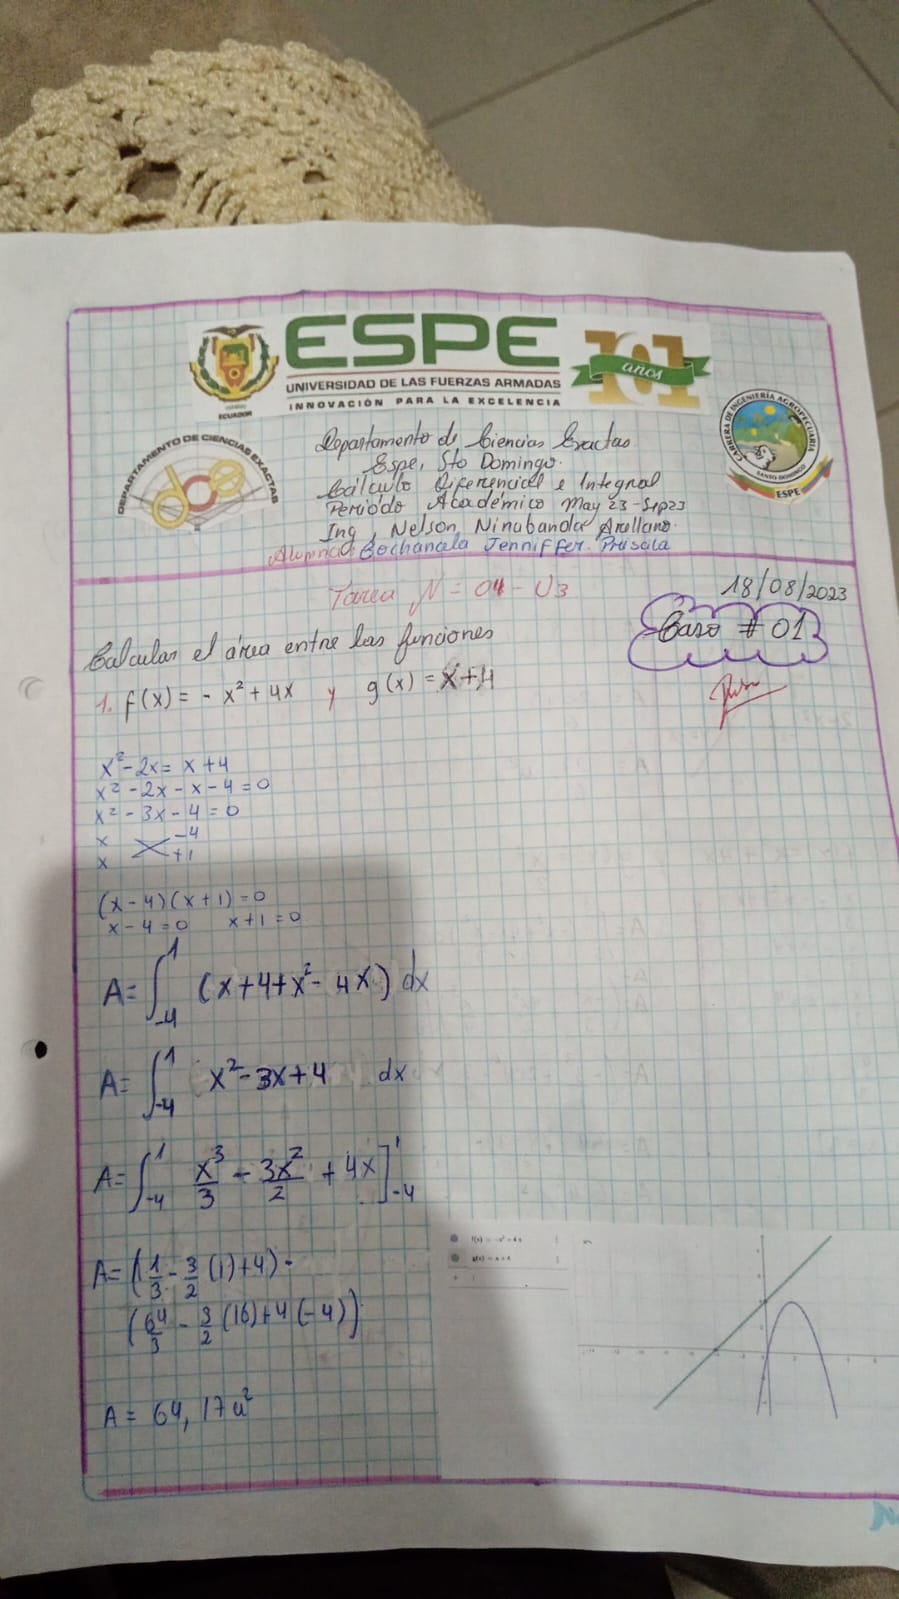 ESPE
UNIVERSIDAD DE LAS FUERZAS ARMADAS
INNOVACIÓN PARA LA EXCELENCIA
ECUADOR
101 años
DEPARTAMENTO DE CIENCIAS EXACTAS
dce
CARRERA DE INGENIERÍA AGROPECUARIA
SANTO DOMINGO
ESPE
Departamento de Ciencias Exactas
Espe, Sto Domingo.
Cálculo Diferencial e Integral
Periódo Académico May 23-Sep23
Ing. Nelson Ninabanda Arellano.
Alumna: Cochancela Jenniffer Priscila
Tarea N= 04-U3
18/08/2023
Caso #01
Calcular el área entre las funciones
1. f(x) = - x² + 4x y g(x) = x+4
x²-2x= x+4
x²-2x-x-4=0
x²-3x-4=0
x -4
x +1
(x-4)(x+1)=0
x-4=0 x+1=0
A= ∫₋₄¹ (x+4+x²- 4x) dx
A= ∫₋₄¹ x²-3x+4 dx
A= ∫₋₄¹ x³/3 - 3x²/2 + 4x]₋₄¹
A= (1/3 - 3/2 (1)+4) -
(64/3 - 3/2 (16)+4(-4))
A = 64,17u²
f(x) = -x²+4x
g(x) = x+4